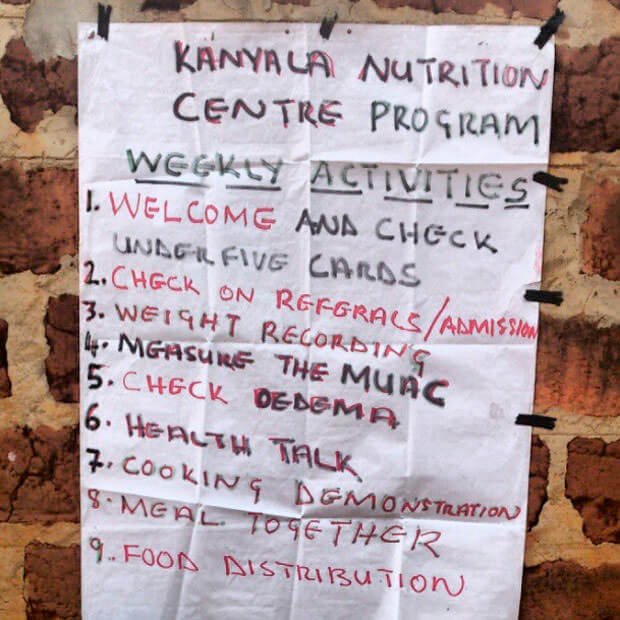 KANYALA NUTRITION
CENTRE PROGRAM
WEEKLY ACTIVITIES
1. WELCOME AND CHECK
UNDER FIVE CARDS
2. CHECK ON REFERALS/ADMISSION
3. WEIGHT RECORDING
4. MEASURE THE MUAC
5. CHECK OEDEMA
6. HEALTH TALK
7. COOKING DEMONSTRATION
8. MEAL TOGETHER
9.. FOOD DISTRIBUTION